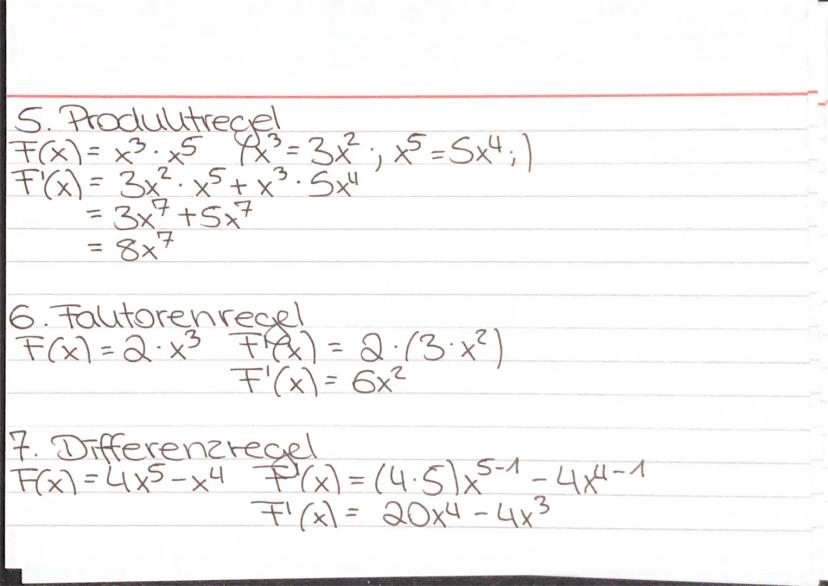 5. Produktregel
F(x) = x³ · x⁵ (x³ = 3x² ; x⁵ = 5x⁴ ;)
F'(x) = 3x² · x⁵ + x³ · 5x⁴
= 3x⁷ + 5x⁷
= 8x⁷
6. Faktorenregel
F(x) = 2 · x³ F'(x) = 2 · (3 · x²)
F'(x) = 6x²
7. Differenzregel
F(x) = 4x⁵ - x⁴ F'(x) = (4 · 5)x⁵⁻¹ - 4x⁴⁻¹
F'(x) = 20x⁴ - 4x³